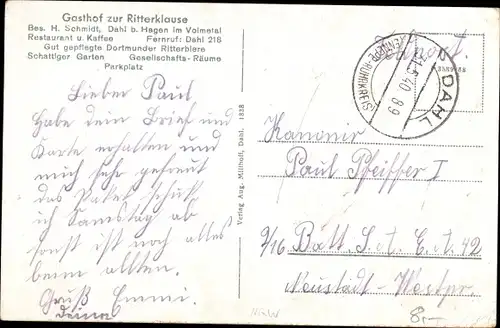 Gasthof zur Ritterklause
Bes. H. Schmidt, Dahl b. Hagen im Volmetal
Restaurant u. Kaffee Fernruf: Dahl 218
Gut gepflegte Dortmunder Ritterbiere
Schattiger Garten Gesellschafts-Räume
Parkplatz
Lieber Paul
Habe dein Brief und
Karte erhalten und
mich sehr gefreut
das Paket schick
ich Samstag ab
sonst ist noch alles
beim alten.
Gruß Emmi.
deine
Verlag Aug. Millhoff, Dahl. 1838
Feldpost.
DAHL
(ENNEPE-RUHRKREIS)
31.5.40 8-9
Kanonier
Paul Pfeiffer I
2/16 Bátt. S. et. E. et. 42
Neustadt-Westpr.
8.-